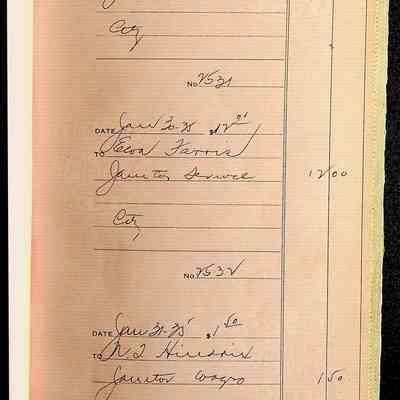 City
No. 2531
DATE Jan 30-35 $12 00
TO Elva Farris
Janitor Service 12 00
City
No. 2532
DATE Jan 31-35 $1 50
TO N. J. Hendrix
Janitor Wages 1 50